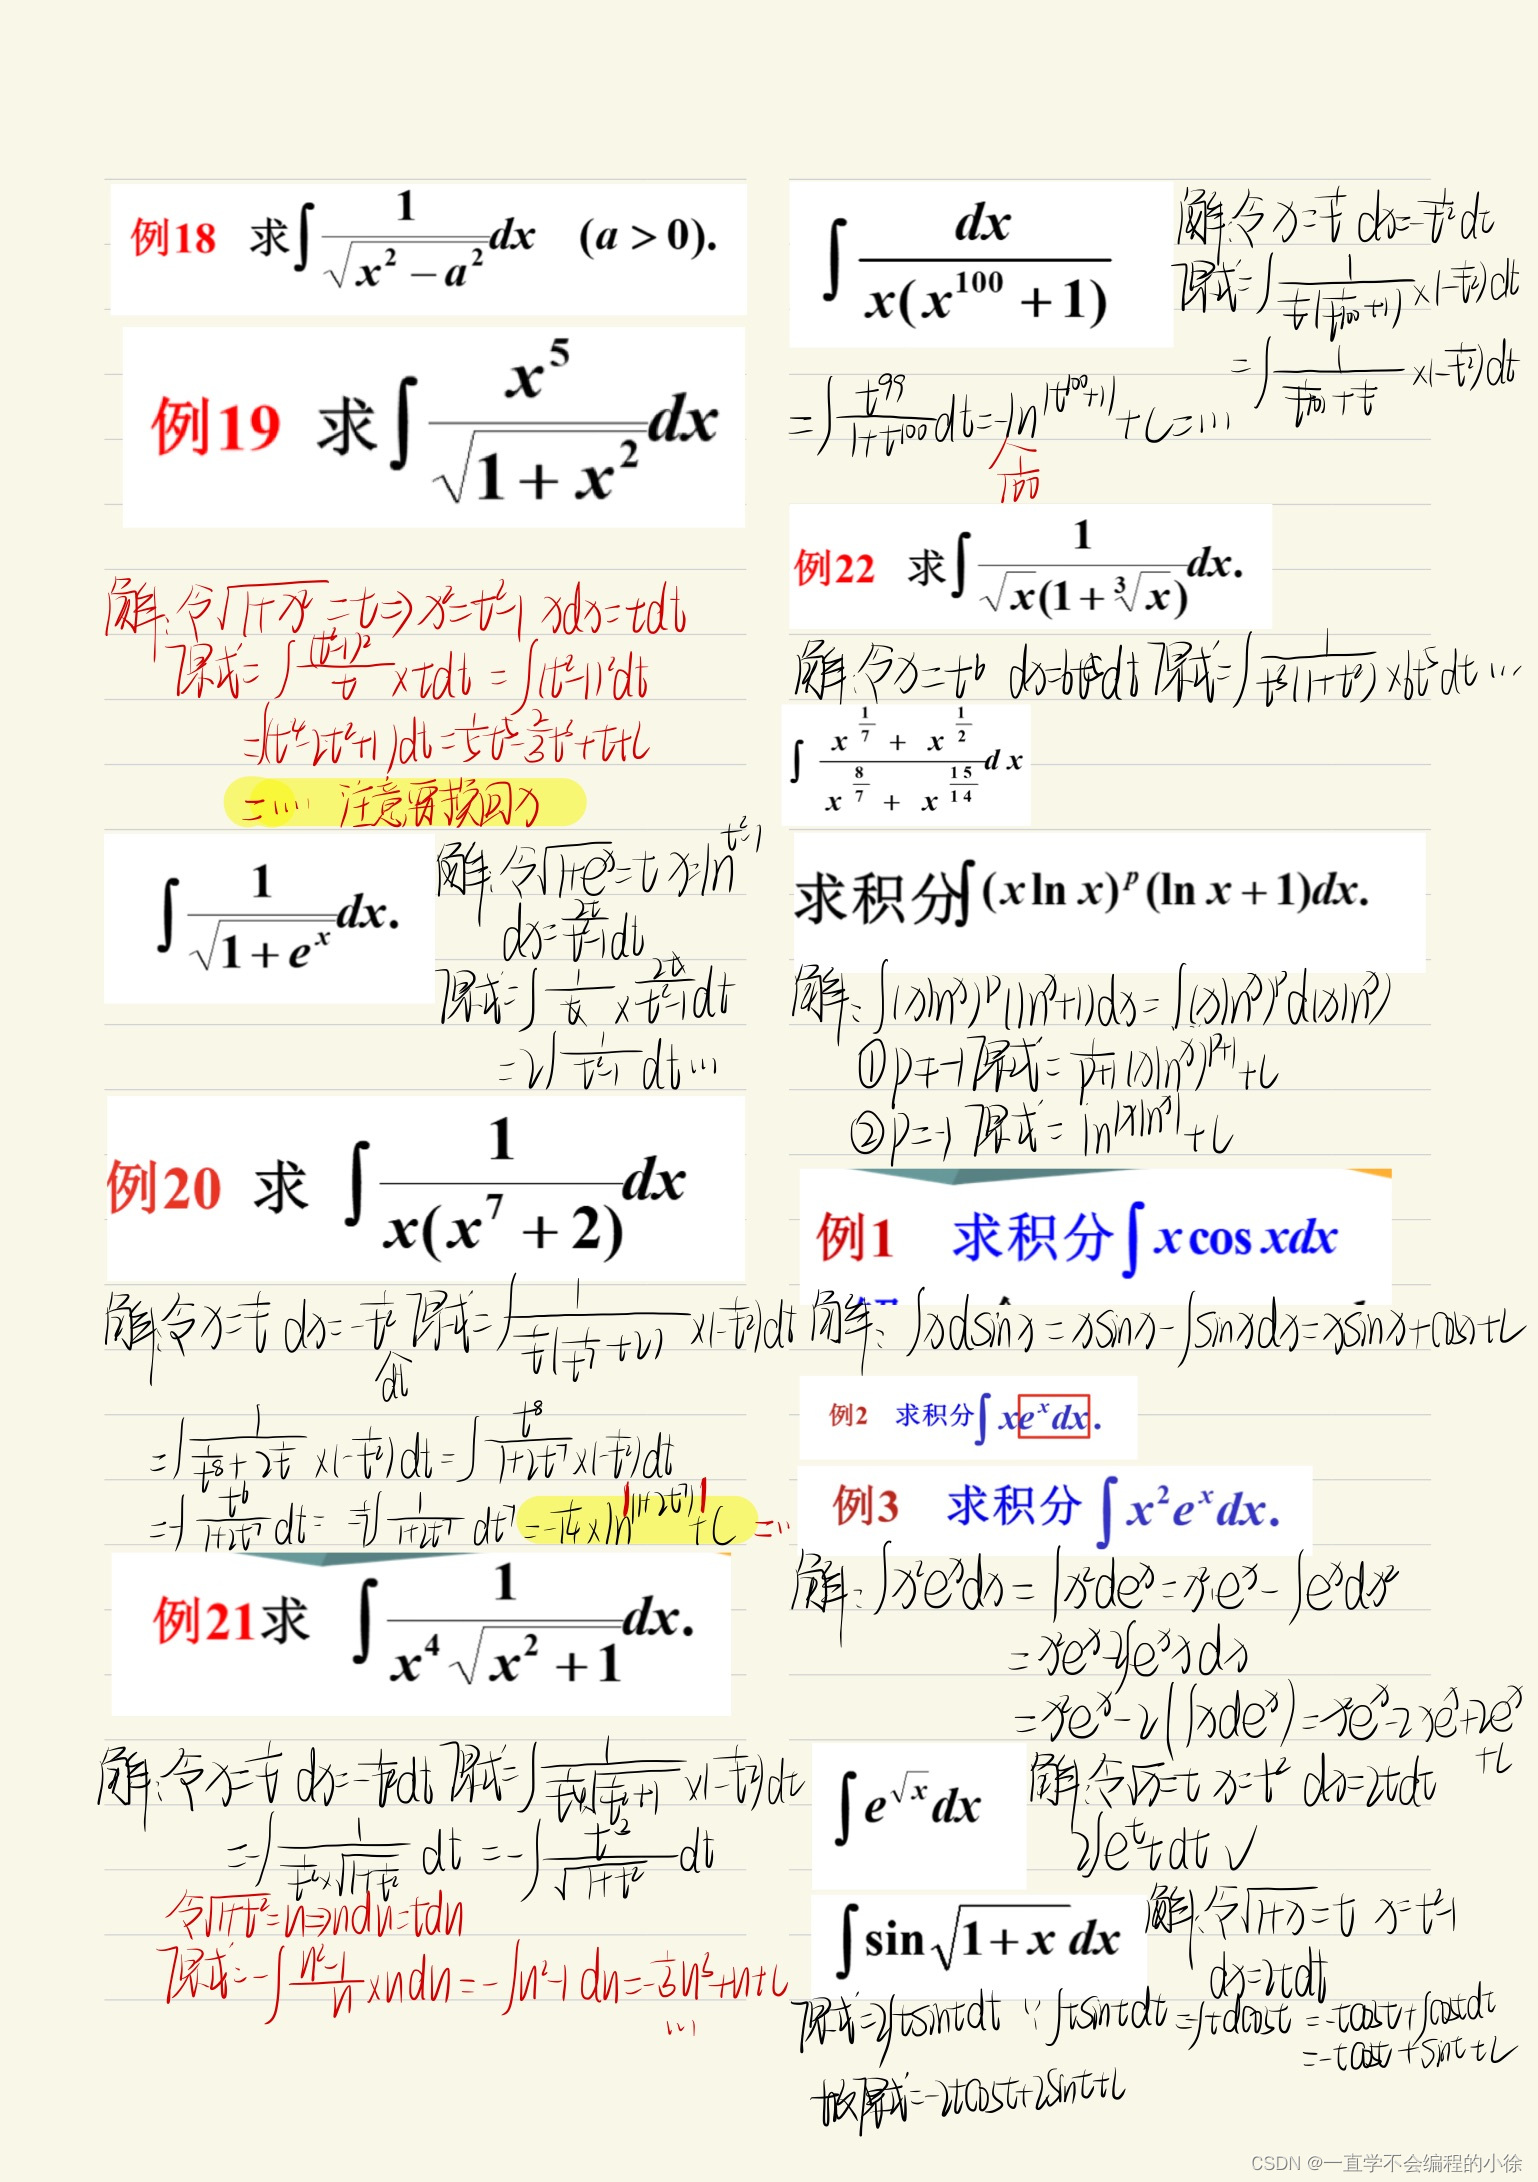 例18 求∫ 1/√(x² − a²) dx (a > 0).
例19 求∫ x⁵/√(1 + x²) dx
解:令√(1+x²) = t ⇒ x² = t²−1 xdx = tdt
原式 = ∫ (t²−1)²/t × tdt = ∫(t²−1)²dt
= ∫(t⁴−2t²+1)dt = 1/5 t⁵ − 2/3 t³ + t + C
= ···· 注意要换回x
∫ 1/√(1 + eˣ) dx.
解:令√(1+eˣ) = t x = ln^(t²−1)
dx = 2t/(t²−1) dt
原式 = ∫ 1/t × 2t/(t²−1) dt
= 2∫ 1/(t²−1) dt ···
例20 求 ∫ 1/(x(x⁷ + 2)) dx
解:令x = 1/t dx = −1/t² dt 原式 = ∫ 1/(1/t(1/t⁷+2)) × (−1/t²)dt
= ∫ 1/(1/t⁸ + 2 1/t) × (−1/t²)dt = ∫ t⁸/(1+2t⁷) × (−1/t²)dt
= −∫ t⁶/(1+2t⁷) dt = −1/7∫ 1/(1+2t⁷) dt⁷ = −1/14 × ln^|1+2t⁷| + C = ···
例21求 ∫ 1/(x⁴√(x² + 1)) dx.
解:令x = 1/t dx = −1/t² dt 原式 = ∫ 1/(1/t⁴√(1/t²+1)) × (−1/t²)dt
= −∫ 1/(1/t² × √(1+1/t²)) dt = −∫ t²/√(1+t²) dt
令√(1+t²) = n ⇒ ndn = tdn
原式 = −∫ (n²−1)/n × ndn = −∫n²−1 dn = −1/3 n³ + n + C
···
∫ dx/(x(x¹⁰⁰ + 1))
解:令x = 1/t dx = −1/t² dt
原式 = ∫ 1/(1/t(1/t¹⁰⁰+1)) × (−1/t²)dt
= ∫ 1/(1/t¹⁰¹ + 1/t) × (−1/t²)dt
= ∫ t⁹⁹/(1+t¹⁰⁰) dt = −ln^|t¹⁰⁰+1| + C = ···
1/100
例22 求∫ 1/(√x(1 + ∛x)) dx.
解:令x = t⁶ dx = 6t⁵dt 原式 = ∫ 1/(t³(1+t²)) × 6t⁵dt ···
∫ (x^(1/7) + x^(1/2))/(x^(8/7) + x^(15/14)) dx
求积分∫(x ln x)ᵖ (ln x + 1)dx.
解:∫(xlnˣ)ᵖ(lnˣ+1)dx = ∫(xlnˣ)ᵖd(xlnˣ)
① p ≠ −1 原式 = 1/(p+1) (xlnˣ)ᵖ⁺¹ + C
② p = −1 原式 = ln^|xlnˣ| + C
例1 求积分∫x cos xdx
解:∫xdsinx = xsinx − ∫sinxdx = xsinx + cosx + C
例2 求积分∫xeˣdx.
例3 求积分 ∫x²eˣdx.
解:∫x²eˣdx = ∫x²deˣ = x²·eˣ − ∫eˣdx²
= x²eˣ − 2∫eˣxdx
= x²eˣ − 2(∫xdeˣ) = x²eˣ − 2xeˣ + 2eˣ
+C
∫e^√x dx
解:令√x = t x = t² dx = 2tdt
2∫eᵗtdt √
∫sin√(1 + x) dx
解:令√(1+x) = t x = t²−1
dx = 2tdt
原式 = 2∫tsintdt ∵ ∫tsintdt = −∫tdcost = −tcost + ∫costdt
= −tcost + sint + C
故原式 = −2tcost + 2sint + C
CSDN @一直学不会编程的小徐